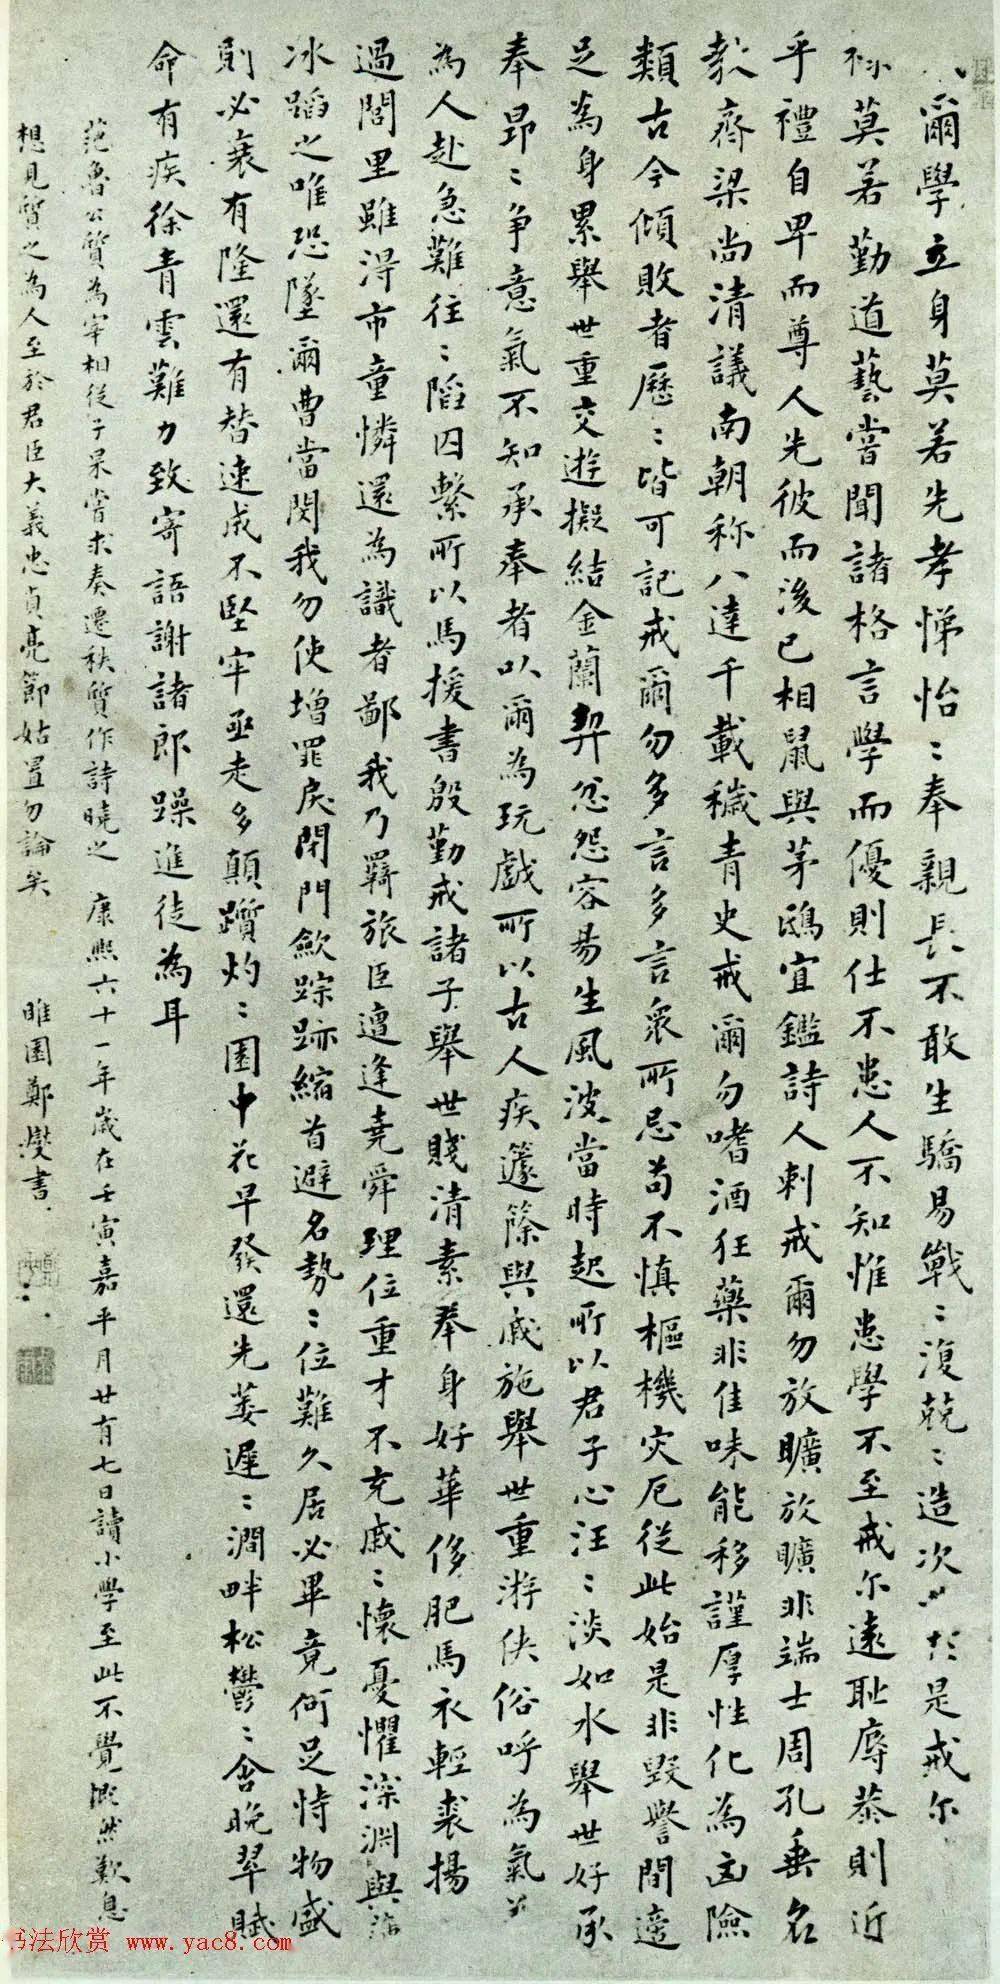 爾學立身莫若先孝悌怡〻奉親長不敢生驕易戰〻復兢〻造次於是戒尔
學干祿莫若勤道藝嘗聞諸格言學而優則仕不患人不知惟患學不至戒尔遠恥辱恭則近
乎禮自卑而尊人先彼而後己相鼠與茅鴟宜鑑詩人刺戒爾勿放曠放曠非端士周孔垂名
教齊梁尚清議南朝称八達千載穢青史戒爾勿嗜酒狂藥非佳味能移謹厚性化為凶險
類古今傾敗者歷〻皆可記戒爾勿多言多言衆所忌苟不慎樞機灾厄從此始是非毀譽間適
足為身累舉世重交遊擬結金蘭契忿怨容易生風波當時起所以君子心汪〻淡如水舉世好承
奉昂〻爭意氣不知承奉者以爾為玩戲所以古人疾籧篨與戚施舉世重游侠俗呼為氣義
為人赴急難往〻陷囚繫所以馬援書殷勤戒諸子舉世賤清素奉身好華侈肥馬衣輕裘揚
過閭里雖得市童憐還為識者鄙我乃羇旅臣遭逢堯舜理位重才不充戚〻懷憂懼深淵與薄
冰蹈之唯恐墜爾曹當閔我勿使增罪戾閉門歛踪跡縮首避名勢〻位難久居必畢竟何足恃物盛
則必衰有隆還有替速成不堅牢亟走多顛躓灼〻園中花早發還先萎遲〻澗畔松鬱〻含晚翠賦
命有疾徐青雲難力致寄語謝諸郎躁進徒為耳
范魯公質為宰相從子杲嘗求奏遷秩質作詩曉之 康熙六十一年歲在壬寅嘉平月廿有七日讀小學至此不覺慨然歎息
想見質之為人至於君臣大義忠貞亮節姑置勿論矣 睢園鄭燮書
书法欣赏 www.yac8.com